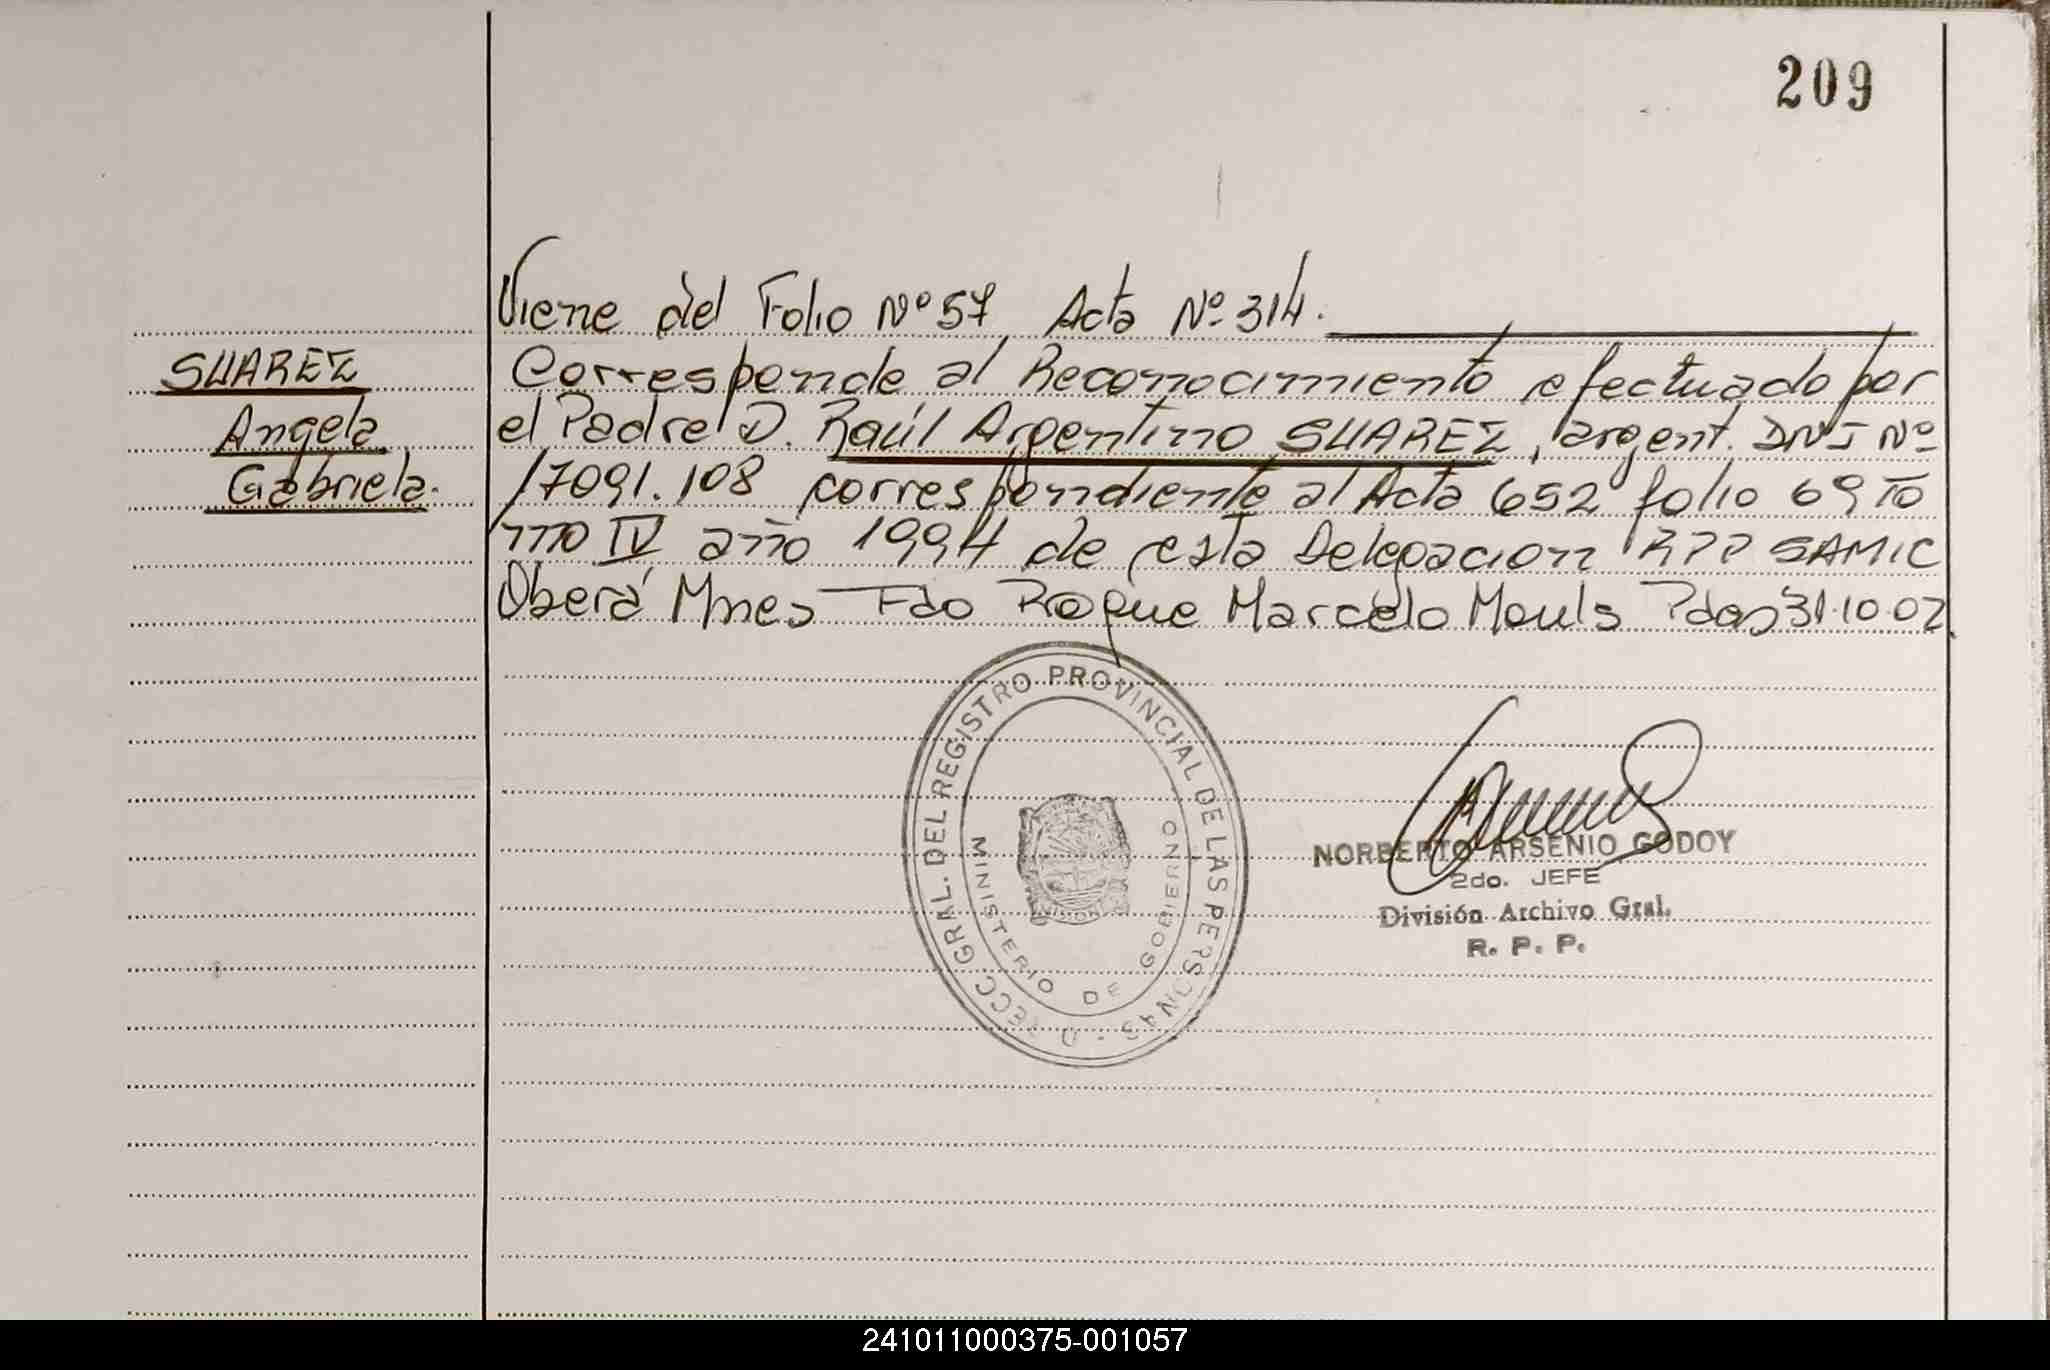 209
Viene del Folio Nº 57 Acta Nº 314.
SUAREZ
Angela
Gabriela.
Corresponde al Reconocimiento efectuado por
el Padre D. Raúl Argentino SUAREZ, argent. DNI Nº
17091.108 correspondiente al Acta 652 folio 69 To
mo IV año 1994 de esta Delegacion RPP SAMIC
Oberá Mnes Fdo Roque Marcelo Mouls Pdas 31.10.02
GRAL. DEL REGISTRO PROVINCIAL DE LAS PERSONAS
MINISTERIO DE GOBIERNO
NORBERTO ARSENIO GODOY
2do. JEFE
División Archivo Gral.
R. P. P.
241011000375-001057